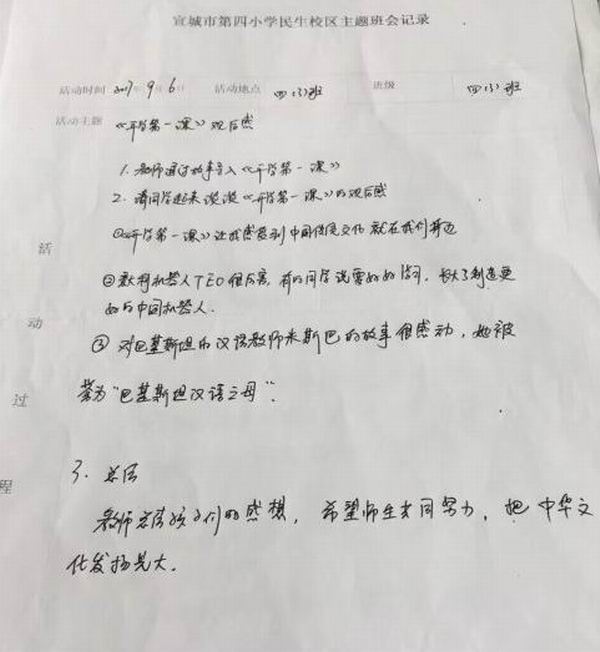 宣城市第四小学民生校区主题班会记录
活动时间 2017年9月6日 活动地点 四(3)班 班级 四(3)班
活动主题 《开学第一课》观后感
1. 教师通过故事导入《开学第一课》
2. 请同学起来谈谈《开学第一课》的观后感
①《开学第一课》让我感受到中国传统文化就在我们身边
②意大利机器人TEO很厉害,有的同学说要好好学习,长大了制造更
好的中国机器人.
③ 对巴基斯坦的汉语教师米斯巴的故事很感动,她被
誉为“巴基斯坦汉语之母”.
3. 总结
教师总结孩子们的感想,希望师生共同努力,把中华文
化发扬光大.
活
动
过
程